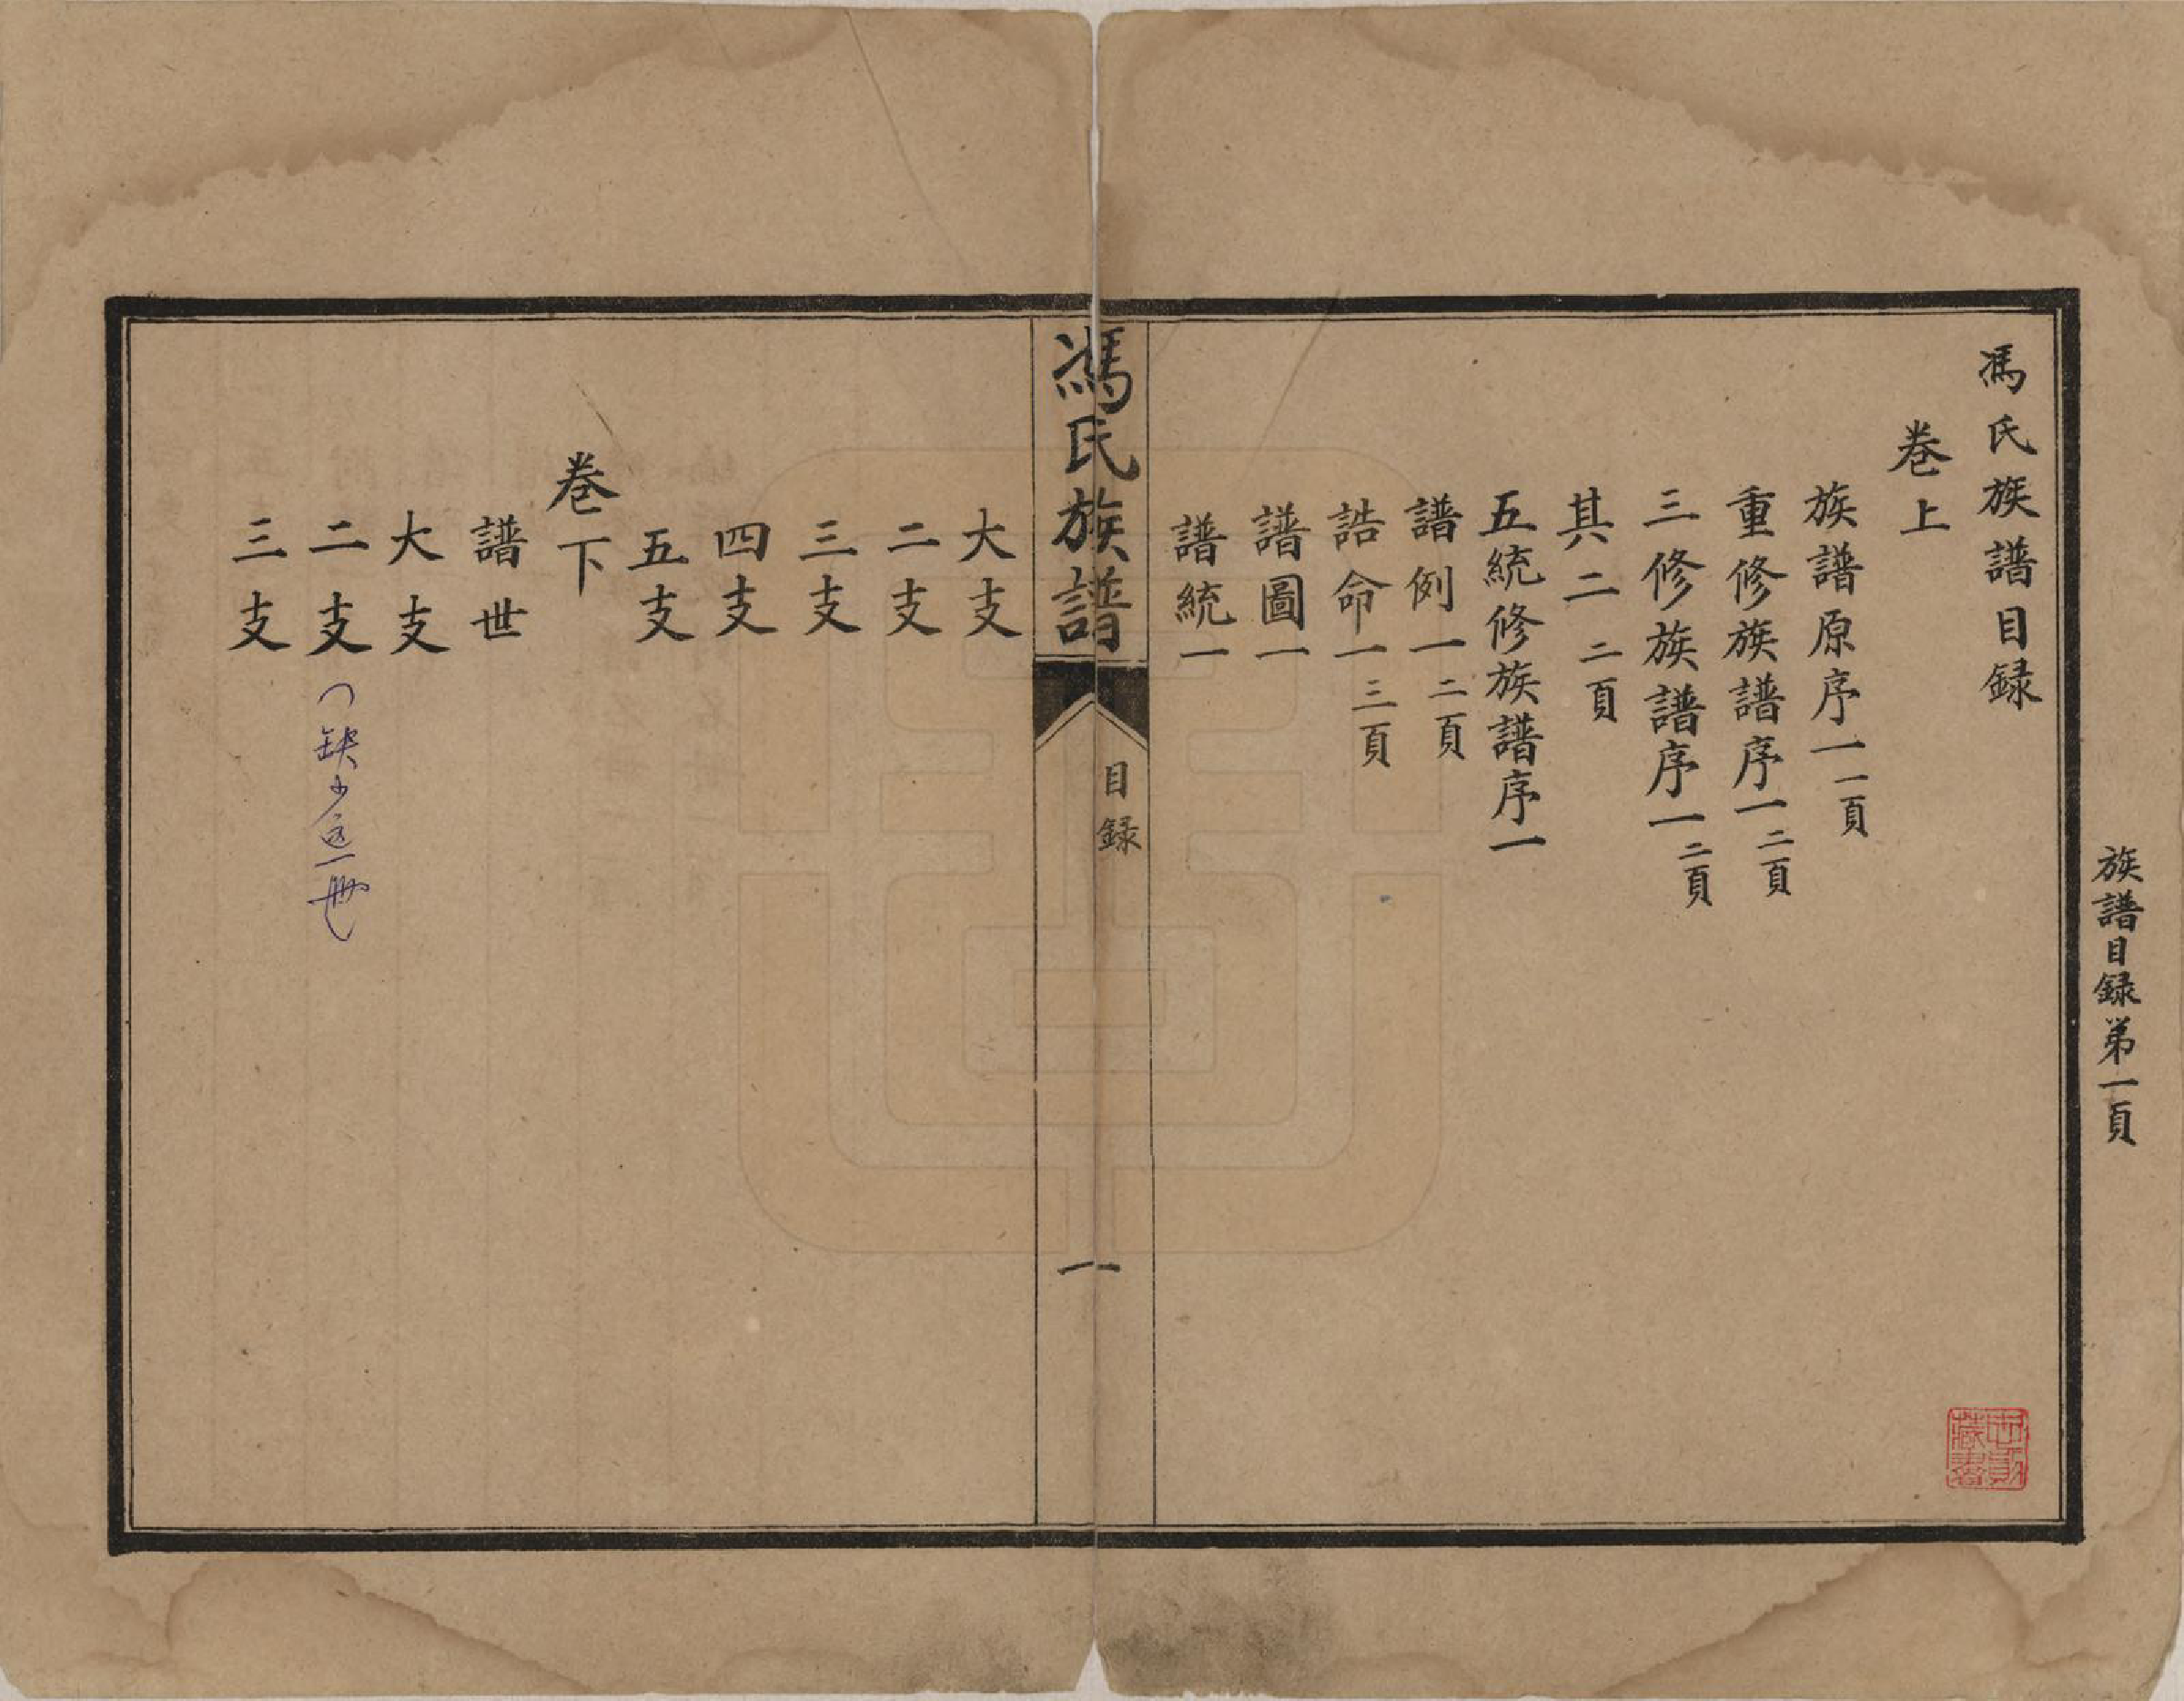 族譜目録弟一頁
馮氏族譜目録
卷上
族譜原序一一頁
重修族譜序一二頁
三修族譜序一二頁
其二二頁
五統修族譜序一
譜例一二頁
誥命一三頁
譜圖一
譜統一
馮氏族譜
目録
一
大支
二支
三支
四支
五支
卷下
譜世
大支
二支(缺少这一册)
三支
藏書